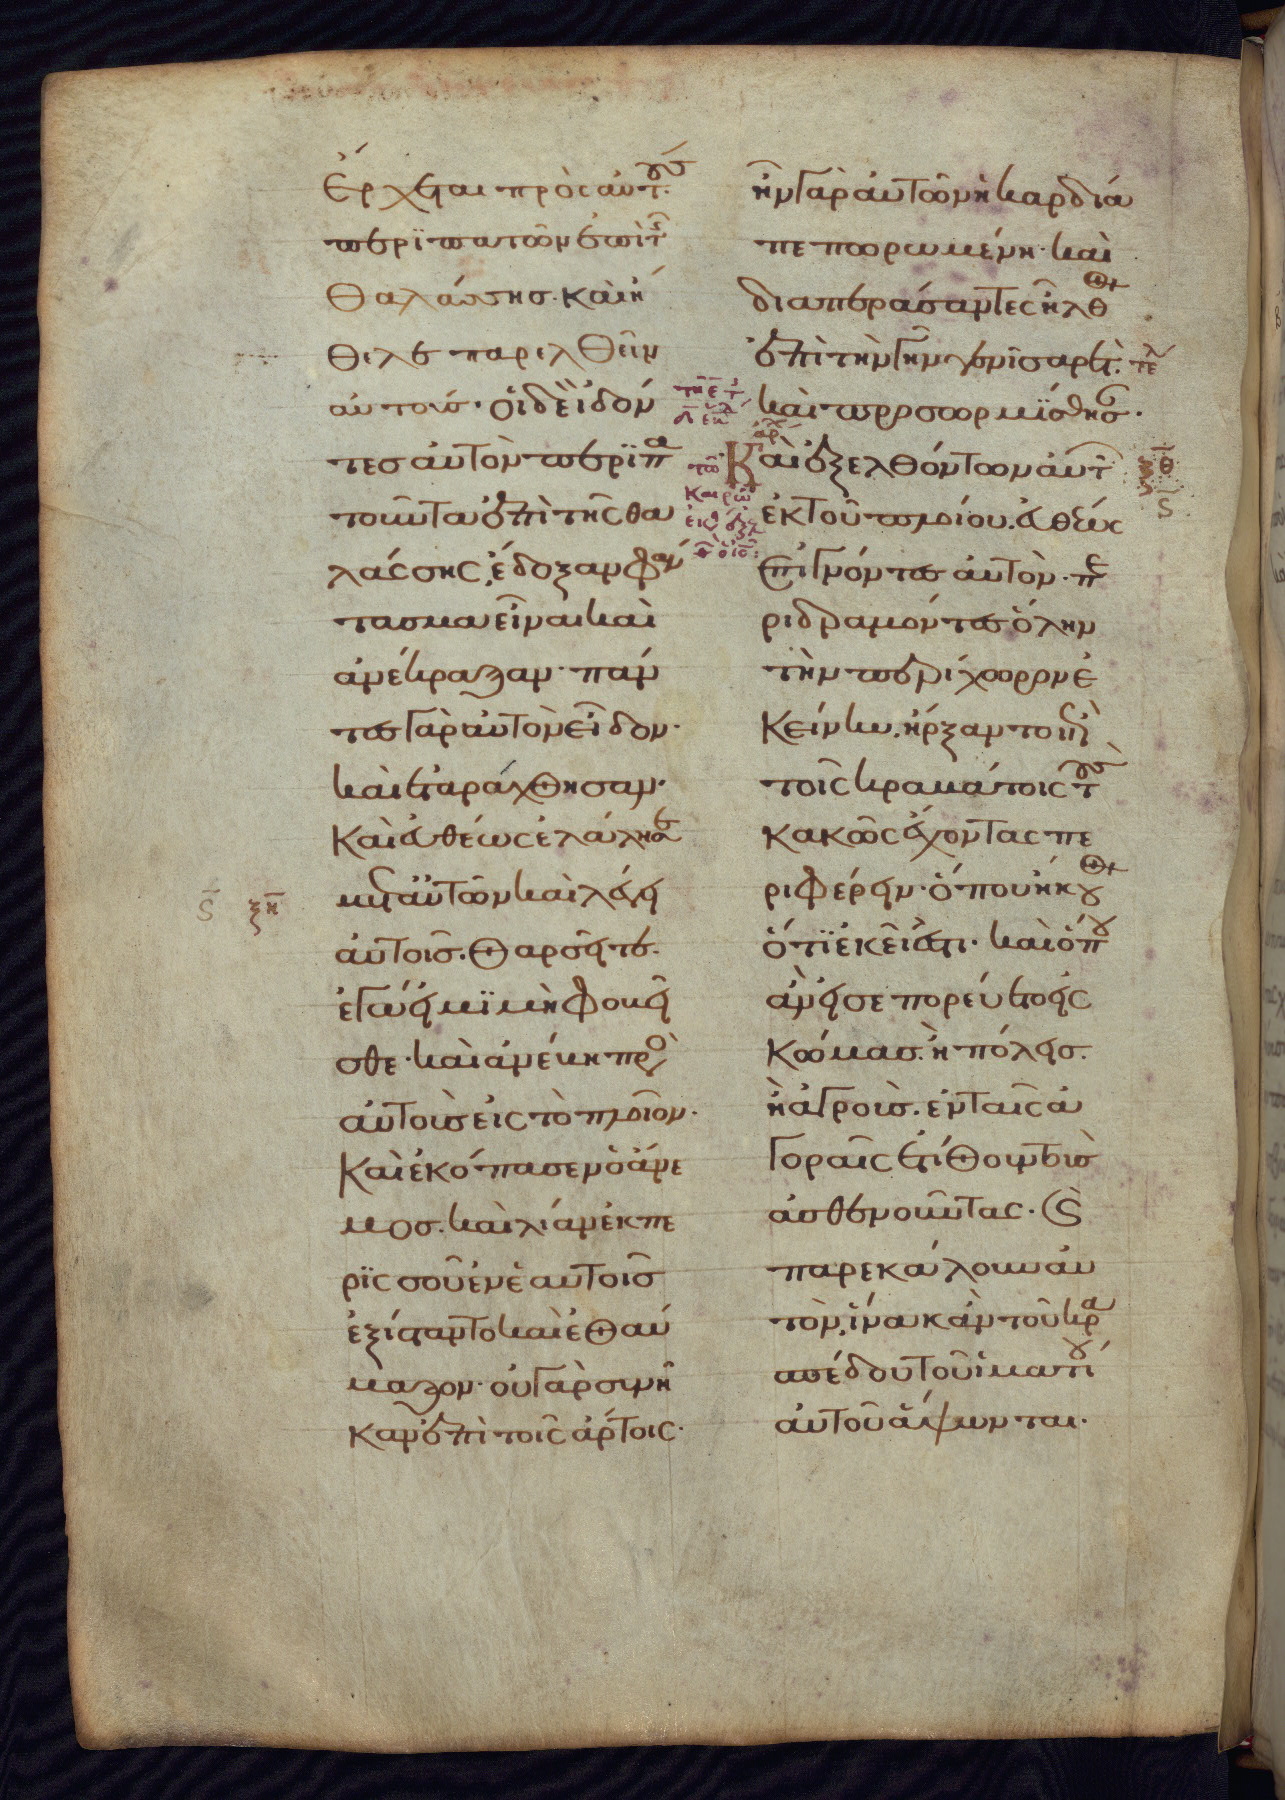 ἔρχεται πρὸς αὐτοὺς
περϊπατῶν ἐπὶ τῆς
θαλάσσης. καὶ ἤ
θελε παρελθεῖν
αὐτούς. οἱ δὲ ἰδόν
τες αὐτὸν περϊπα
τοῦντα ἐπὶ τῆς θα
λάσσης, ἔδοξαν φάν
τασμα εἶναι καὶ
ἀνέκραξαν. πάν
τες γὰρ αὐτὸν εἶδον.
καὶ ἐταράχθησαν.
Καὶ εὐθέως ἐλάλησε
μετ' αὐτῶν καὶ λέγει
αὐτοῖς. Θαρσεῖτε.
ἐγώ εἰμϊ μὴ φοβεῖ
σθε. καὶ ἀνέβη πρὸς
αὐτοὺς εἰς τὸ πλοῖον.
Καὶ ἐκόπασεν ὁ ἄνε
μος. καὶ λίαν ἐκ πε
ρϊσσοῦ ἐν ἑαυτοῖς
ἐξίσταντο καὶ ἐθαύ
μαζον. οὐ γὰρ συνῆ
καν ἐπὶ τοῖς ἄρτοις.
ἦν γὰρ αὐτῶν ἡ καρδία
πεπωρωμένη. καὶ
διαπεράσαντες ἦλθον
ἐπὶ τὴν γῆν γεννῖσαρέτ. τε
καὶ προσωρμίσθησαν.
Καὶ ἐξελθόντων αὐτῶν
ἐκ τοῦ πλοίου. εὐθέως
ἐπιγνόντες αὐτὸν. πε
ριδραμόντες ὅλην
τὴν περίχωρον ἐ
κείνην. ἤρξαντο ἐπὶ
τοῖς κραβάτοις τοὺς
κακῶς ἔχοντας πε
ριφέρειν. ὅπου ἤκουον
ὅτϊ ἐκεῖ ἐστι. καὶ ὅπου
ἂν εἰσεπορεύετο εἰς
κώμας. ἢ πόλεις.
ἢ ἀγροὺς. ἐν ταῖς ἀ
γοραῖς ἐτίθουν τοὺς
ἀσθενοῦντας. καὶ
παρεκάλουν αὐ
τὸν, ἵνα κἂν τοῦ κρα
σπέδου τοῦ ἱματίου
αὐτοῦ ἅψωνται.
ξη
ξθ